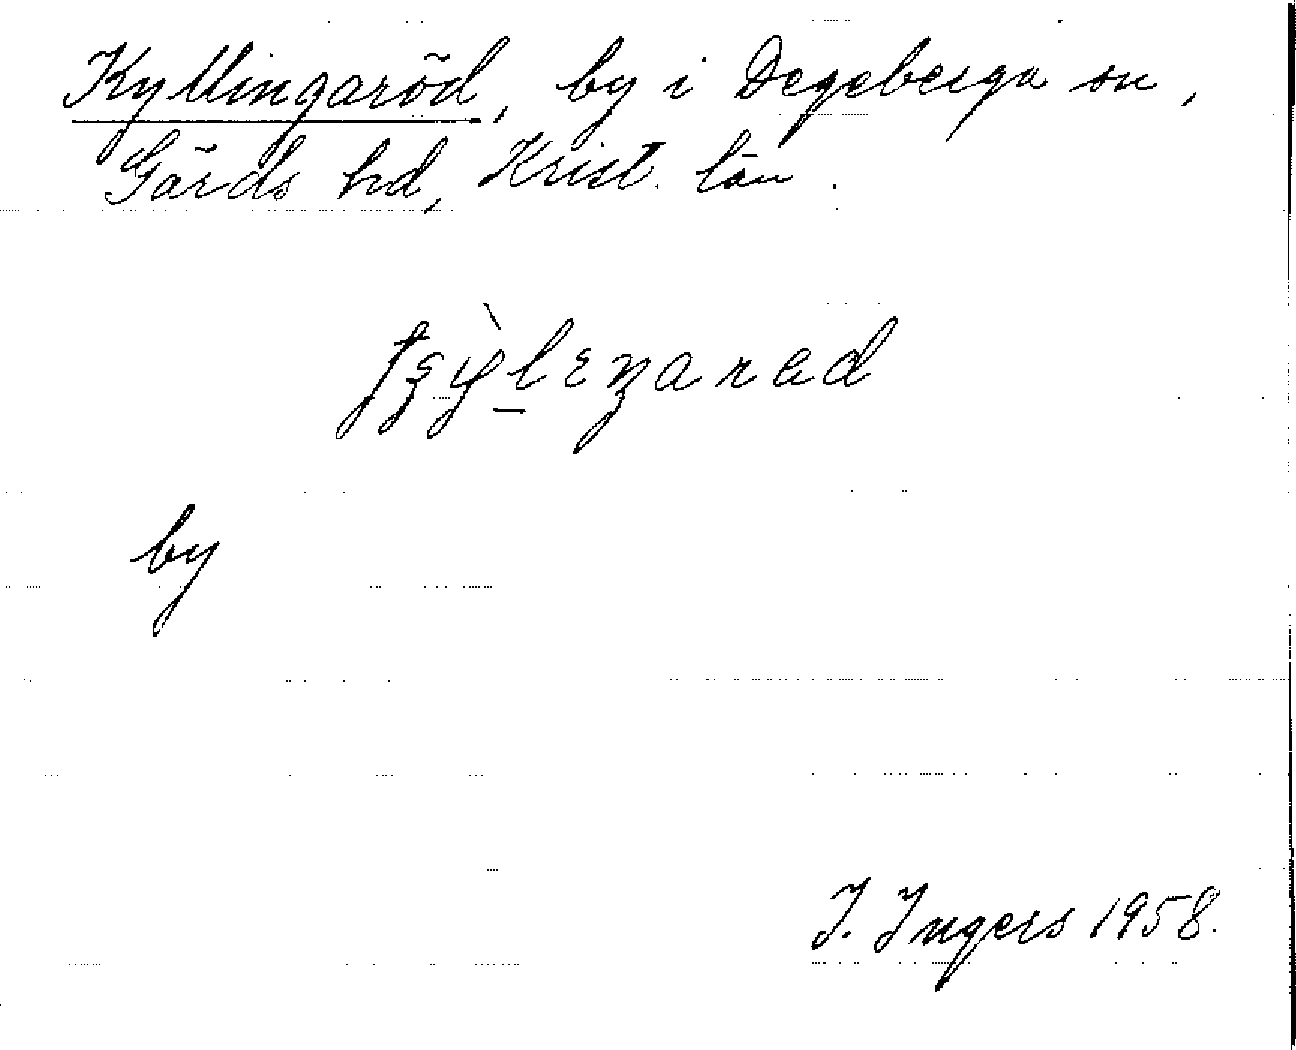 Kyllingaröd, by i Degeberga sn,
Gärds hd, Krist. län.
by
I. Ingers 1958.